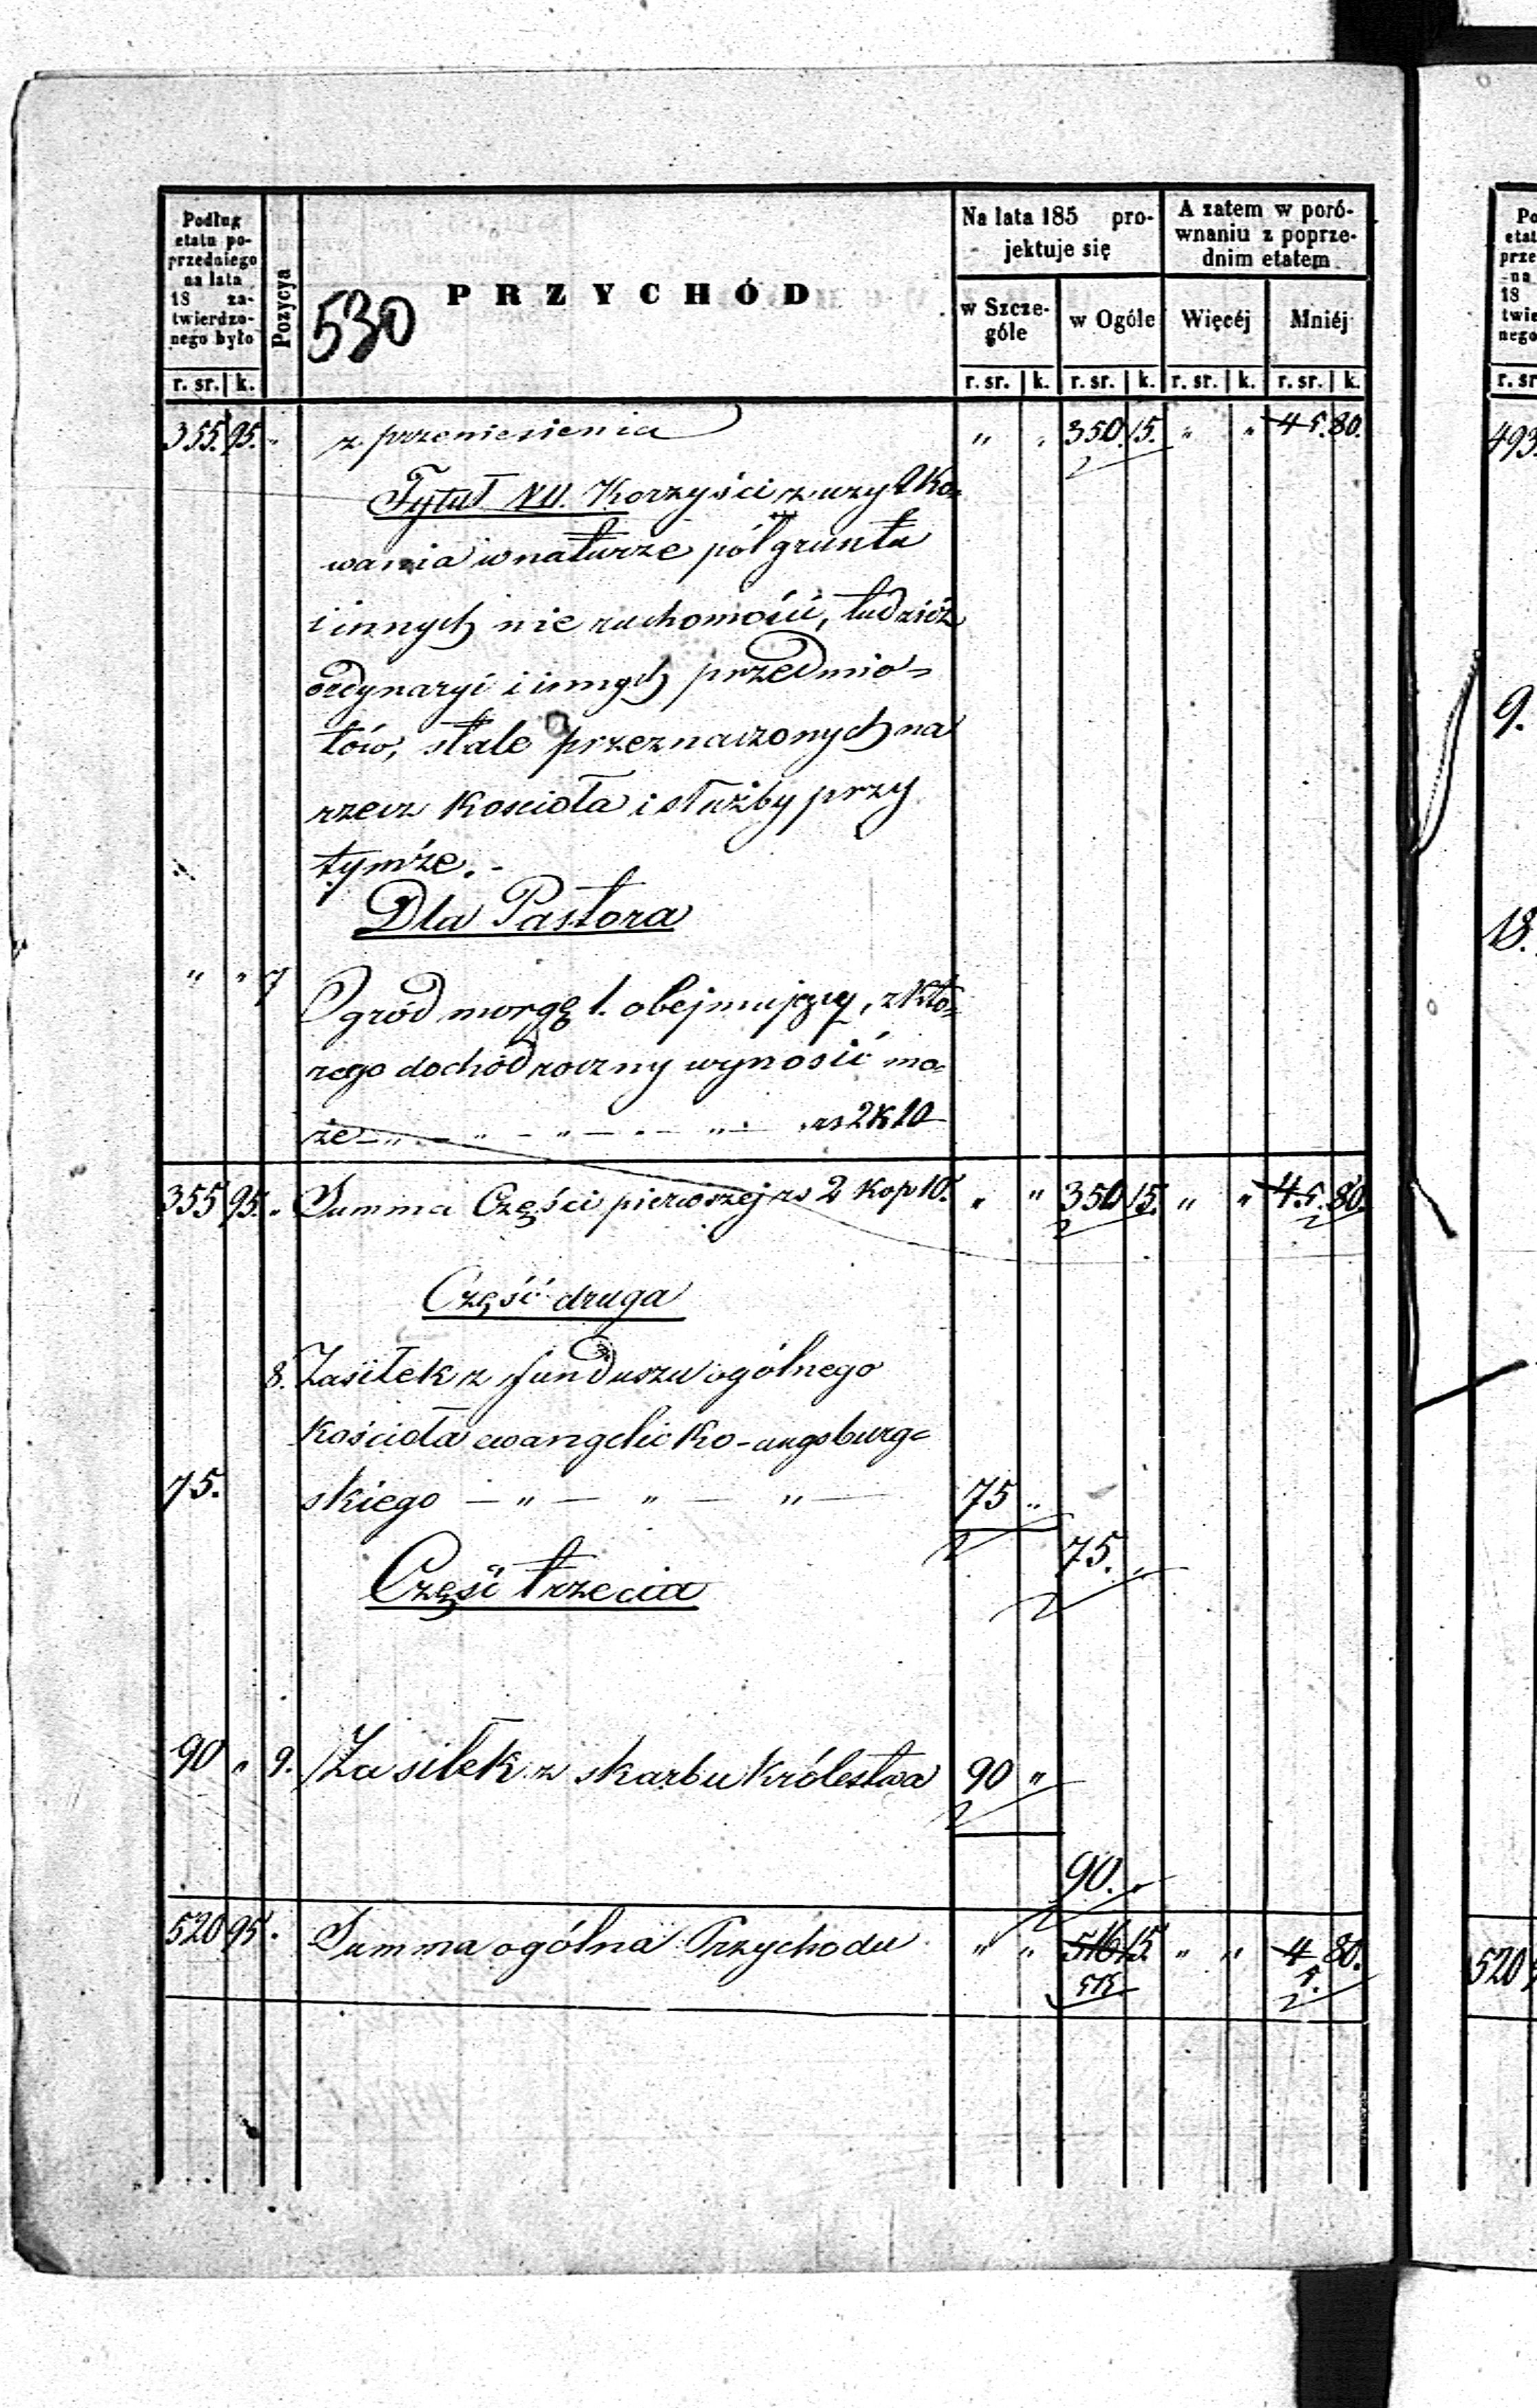 Podług etatu poprzedniego na lata 18 zatwierdzonego było
Pozycya
530 PRZYCHÓD
Na lata 185 projektuje się
A zatem w porównaniu z poprzednim etatem
w Szczególe
w Ogóle
Więcéj
Mniéj
r. sr. k. r. sr. k. r. sr. k. r. sr. k. r. sr. k.
355. 95. „ z przeniesienia „ „ 350. 15. „ „ 4 5. 80.
Tytuł VII. Korzyści z użytko=
wania w naturze pól gruntu
i innych nie ruchomości, tudzież
ordynaryi i innych przedmio=
tów, stale przeznaczonych na
rzecz Kościoła i służby przy
tymże.-
Dla Pastora
„ „ 7 Ogród morgę 1. obejmujący, z któ=
rego dochód roczny wynosić mo=
że — „ — „ — „ — „ — rs 2 k 10
355 95. „ Summa Części pierwszej rs 2 kop 10. „ „ 350 15. „ „ 4 5. 80.
Część druga
8. Zasiłek z funduszu ogólnego
Kościoła ewangelicko-augsburg=
75. skiego — „ — „ — „ — 75 „
75. „
Część trzecia
90 „ 9. Zasiłek z skarbu Królestwa 90 „
90. „
520 95. Summa ogólna Przychodu „ „ 516 15. „ „ 4 80.
515 5.
Po
etat
prze
na
18
twie
nego
r. sr
493.
9.
18.
520